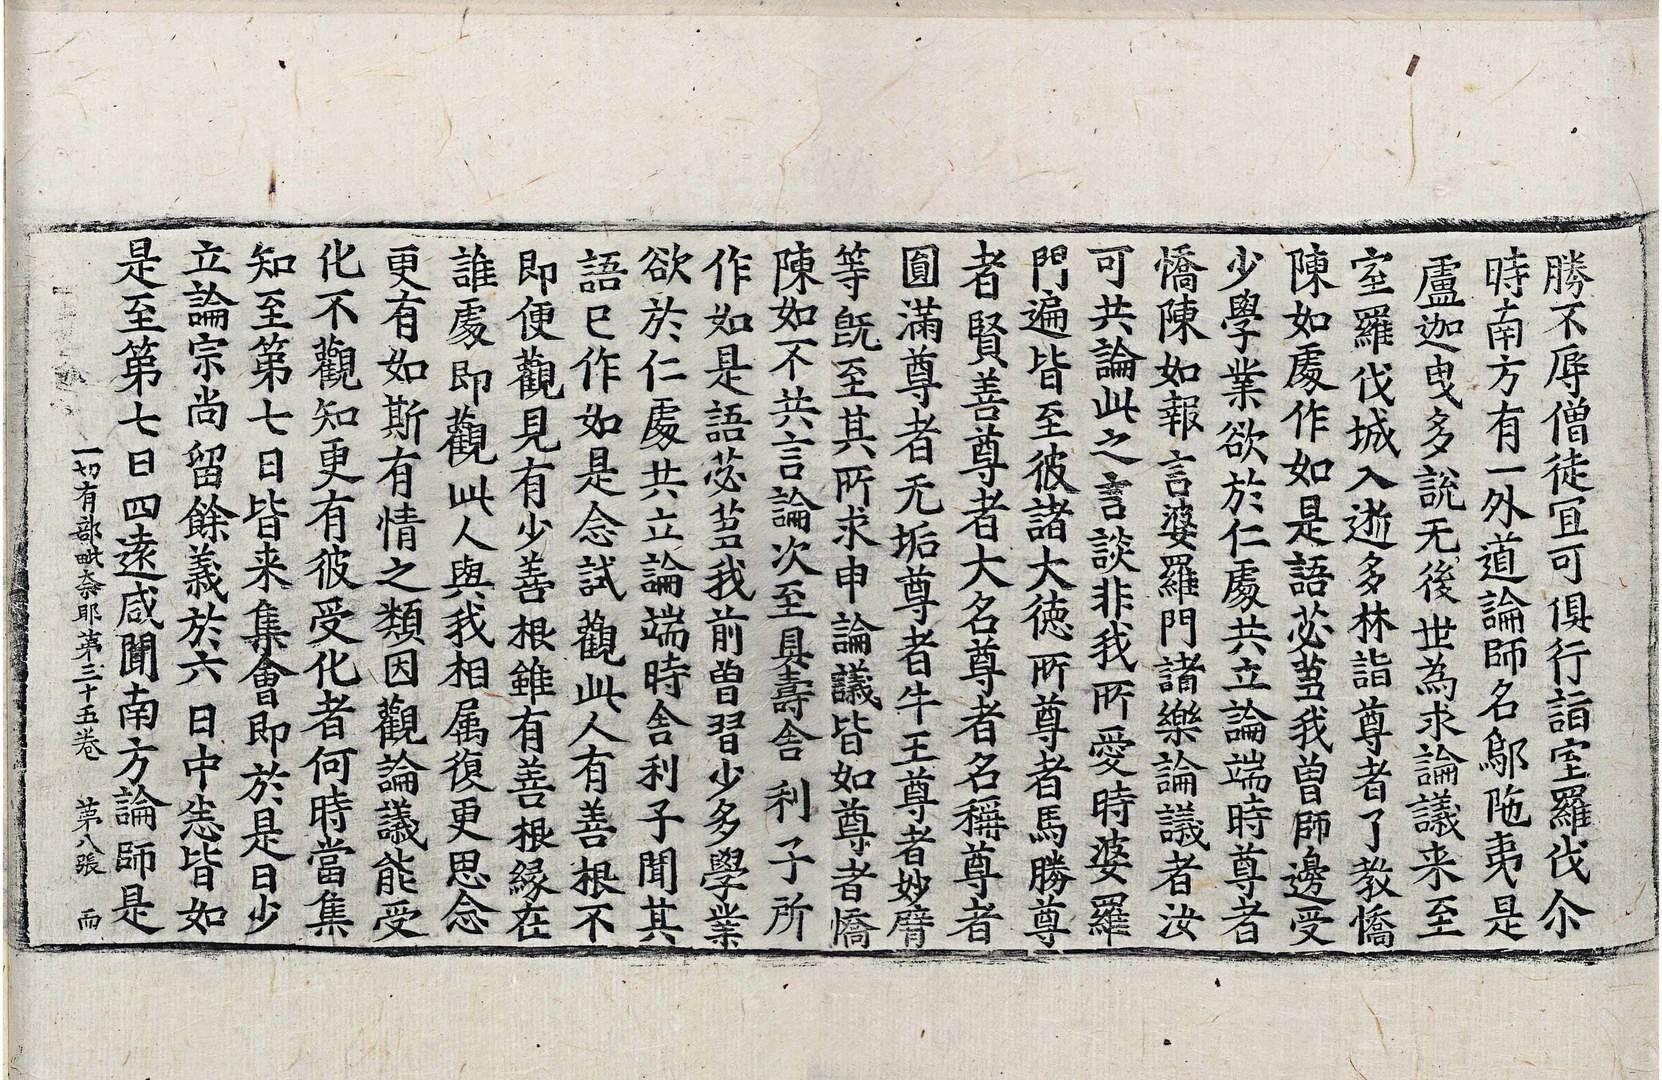 勝不辱僧徒冝可俱行詣室羅伐尒
時南方有一外道論師名鄔陁夷是
盧迦曳多說无後世為求論議来至
室羅伐城入逝多林詣尊者了教憍
陳如處作如是語苾芻我曾師邊受
少學業欲於仁處共立論端時尊者
憍陳如報言婆羅門諸樂論議者汝
可共論此之言談非我所愛時婆羅
門遍皆至彼諸大德所尊者馬勝尊
者賢善尊者大名尊者名稱尊者
圓滿尊者无垢尊者牛王尊者妙臂
等旣至其所求申論議皆如尊者憍
陳如不共言論次至具壽舎利子所
作如是語苾芻我前曾習少多學業
欲於仁處共立論端時舎利子聞其
語已作如是念試觀此人有善根不
即便觀見有少善根雖有善根緣在
誰處即觀此人與我相属復更思念
更有如斯有情之類因觀論議能受
化不觀知更有彼受化者何時當集
知至第七日皆来集會即於是日少
立論宗尚留餘義於六日中恙皆如
是至第七日四遠咸聞南方論師是
一切有部毗奈耶第三十五卷　第八張　而